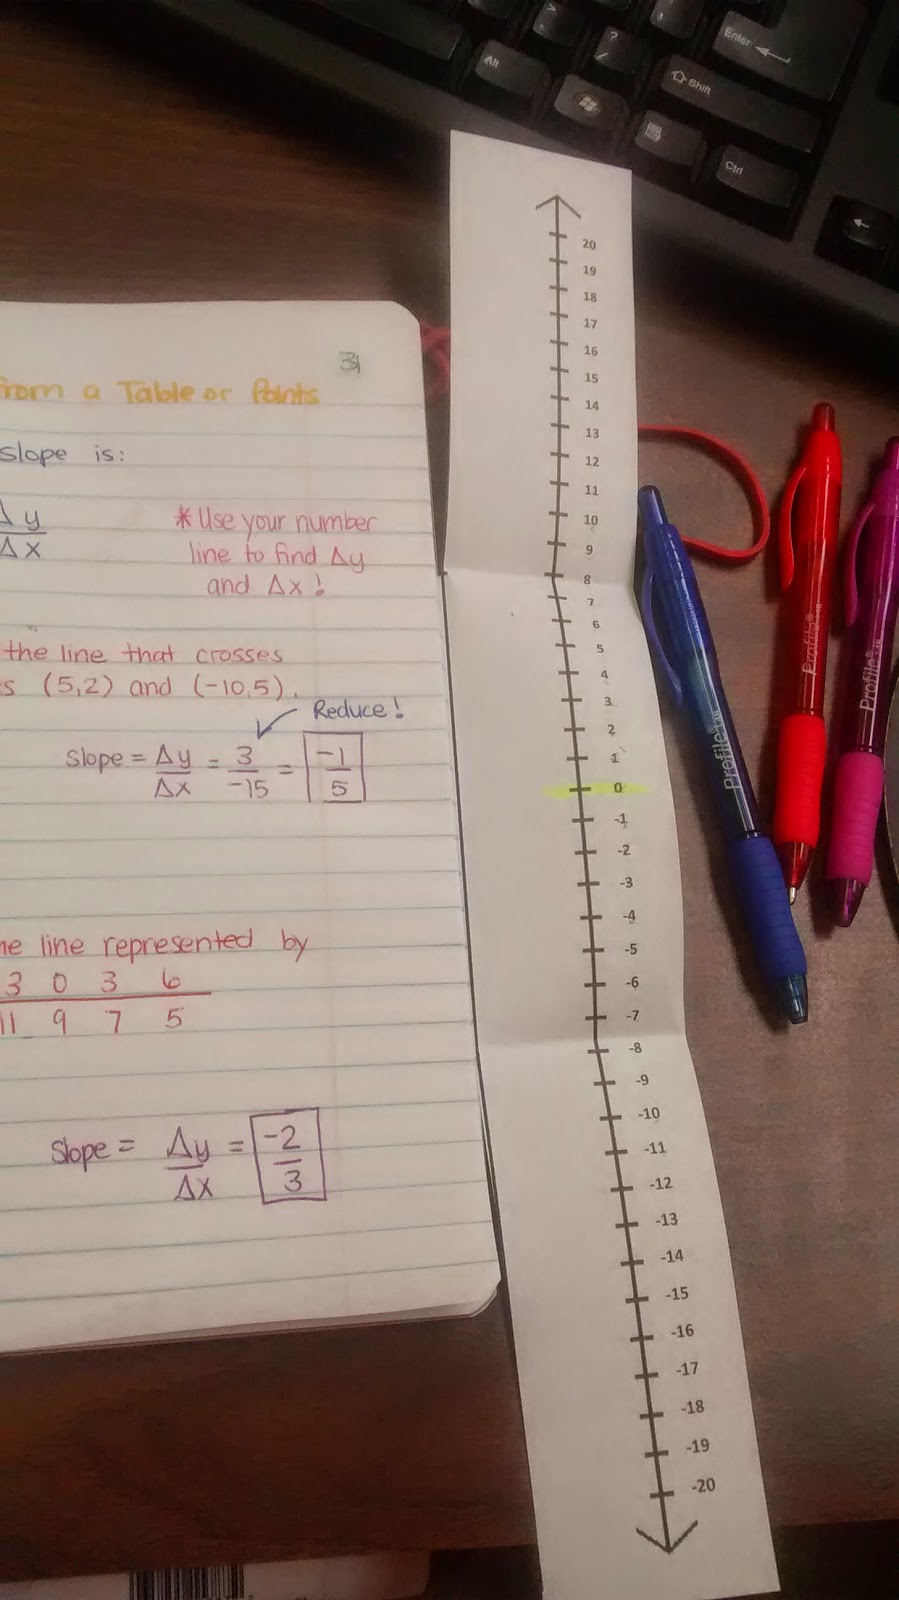 31
from a Table or Points
slope is:
Δy
Δx
* Use your number
line to find Δy
and Δx!
the line that crosses
(5,2) and (-10,5).
Reduce!
Slope = Δy/Δx = 3/-15 = -1/5
line represented by
3 0 3 6
11 9 7 5
Slope = Δy/Δx = -2/3
20
19
18
17
16
15
14
13
12
11
10
9
8
7
6
5
4
3
2
1
0
-1
-2
-3
-4
-5
-6
-7
-8
-9
-10
-11
-12
-13
-14
-15
-16
-17
-18
-19
-20
Enter
Alt
Shift
Ctrl
>
.
?
/
Profile
Profile
Profile